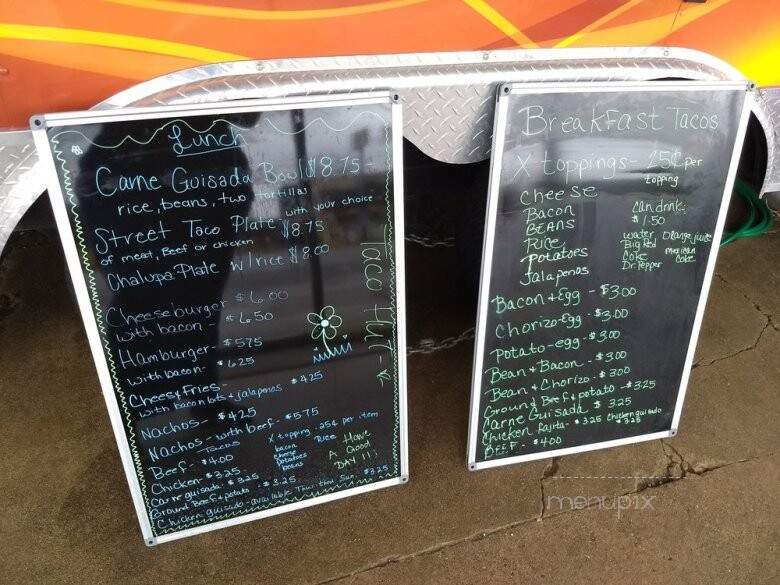 Lunch
Carne Guisada Bowl $8.75-
rice, beans, two tortillas
Street Taco Plate with your choice
of meat, Beef or chicken $8.75
Chalupa Plate w/rice $8.00
Cheeseburger $6.00
with bacon - $6.50
Hamburger - $575
with bacon - $625
Cheese Fries -
with bacon bits + jalapenos $425
Nachos - $425
Nachos - with beef - $575
Tacos
Beef - $4.00
Chicken - $3.25
Carne guisada - $3.25
Ground Beef + potato - $3.25
Chicken guisado - available Tues thru Sun - $3.25
X topping .25¢ per item
bacon Rice
cheese
potatoes
beans
A Have
Good
DAY!!!
Taco Hut
Breakfast Tacos
X toppings - 25¢ per
topping
Cheese
Bacon
BEANS
Rice
Potatoes
Jalapenos
Can drink
$1.50
water, Orange juice
Big Red mexican
Coke Coke
Dr Pepper
Bacon + Egg - $3.00
Chorizo-Egg - $3.00
Potato-egg - $3.00
Bean + Bacon - $3.00
Bean + Chorizo - $3.00
Ground Beef + potato - $3.25
Carne Guisada $ 3.25
Chicken fajita - $3.25 Chicken guisado
$3.25
BEEF - $4.00
menupix